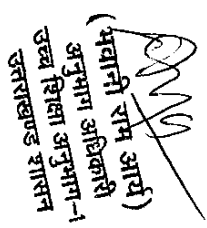 (भवानी राम आर्य)
अनुभाग अधिकारी
उच्च शिक्षा अनुभाग-1
उत्तराखण्ड शासन